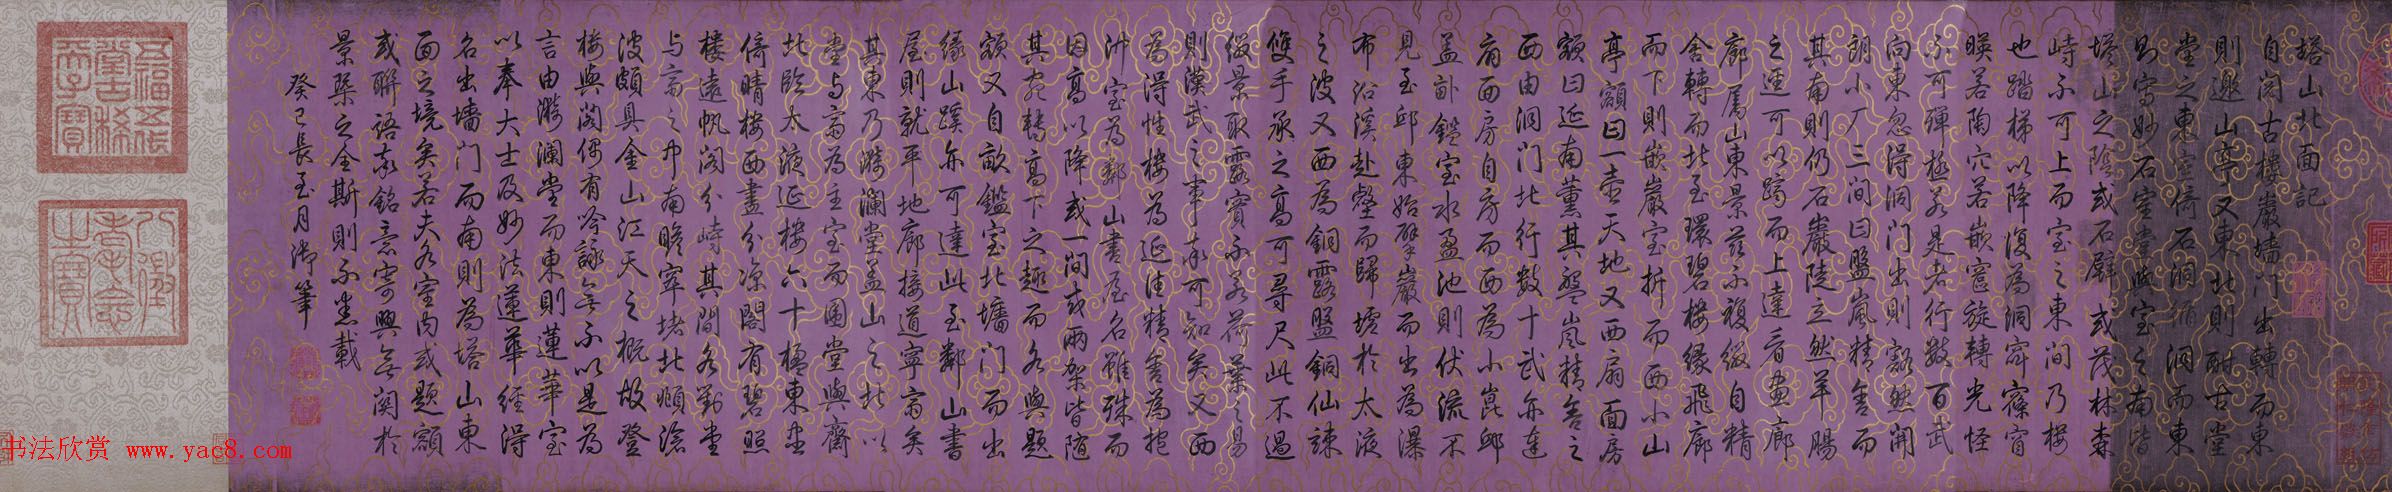 塔山北面記
自閱古樓巖墻門出轉而東
則邀山亭又東北則酣古堂
堂之東室倚石洞循洞而東
則寫妙石室堂與室之南皆
塔山之陰或石壁或茂林森
峙不可上而室之東間乃樓
也踏梯以降復為洞窈窱窅
暎若陶穴若嵌窻旋轉光怪
不可殫極若是者行數百武
向東忽得洞門出則豁然開
朗小厂三間曰盤嵐精舍而
其南則仍石巖陡立然羊腸
之逕可以躋而上達看畫廊
廊屬山東景茲不複綴自精
舍轉而北至環碧樓緣飛廊
而下則嵌巖室折而西小山
亭額曰一壺天地又西扇面房
額曰延南薰其盤嵐精舍之
西由洞門北行數十武亦達
扇面房自房而西為小崑邱
盖畝鑑室水盈池則伏流不
見至邱東始擘巖而出為瀑
布沿溪赴壑而歸墟於太液
之波又西為銅露盤銅仙竦
雙手承之高可尋尺此不過
綴景取露實不若荷葉之易
則漢武之事率可知矣又西
為得性樓為延佳精舍為抱
沖室為鄰山書屋名雖殊而
因高以降或一間或兩架皆随
其宛轉高下之趣而各與題
額又自畝鑑室北墻門而出
緣山蹊亦可達此至鄰山書
屋則就平地廊接道寧齋矣
其東乃漪瀾堂盖山之北以
堂與齋為主室而圍堂與齋
北臨太液延樓六十楹東盡
倚晴樓西盡分涼閣有碧照
樓遠帆閣分峙其間各對堂
與齋之中南瞻窣堵北頫滄
波頗具金山江天之概故登
樓與閣偶有吟詠無不以是為
言由漪瀾堂而東則蓮華室
以奉大士及妙法蓮華經得
名出墻門而南則為塔山東
面之境矣若夫各室内或題額
或聯語率銘意寄興無關於
景槩之全斯則不悉載
癸巳長至月御筆
五福五代堂古稀天子寶
八徵耄念之寶
书法欣赏 www.yac8.com